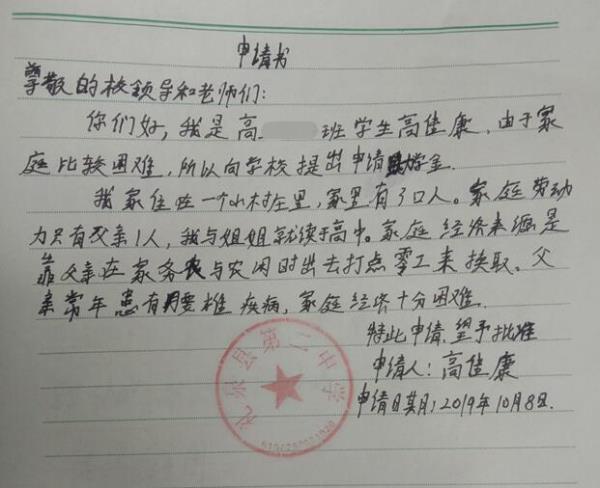 申请书
尊敬的校领导和老师们:
你们好,我是高 班学生高佳康,由于家
庭比较困难,所以向学校提出申请助学金.
我家住在一个小村庄里,家里有3口人。家庭劳动
力只有父亲1人,我与姐姐就读于高中。家庭经济来源是
靠父亲在家务农与农闲时出去打点零工来换取。父
亲常年患有腰椎疾病,家庭经济十分困难.
特此申请,望予批准
申请人:高佳康
申请日期:2019年10月8日.
礼泉县第二中学